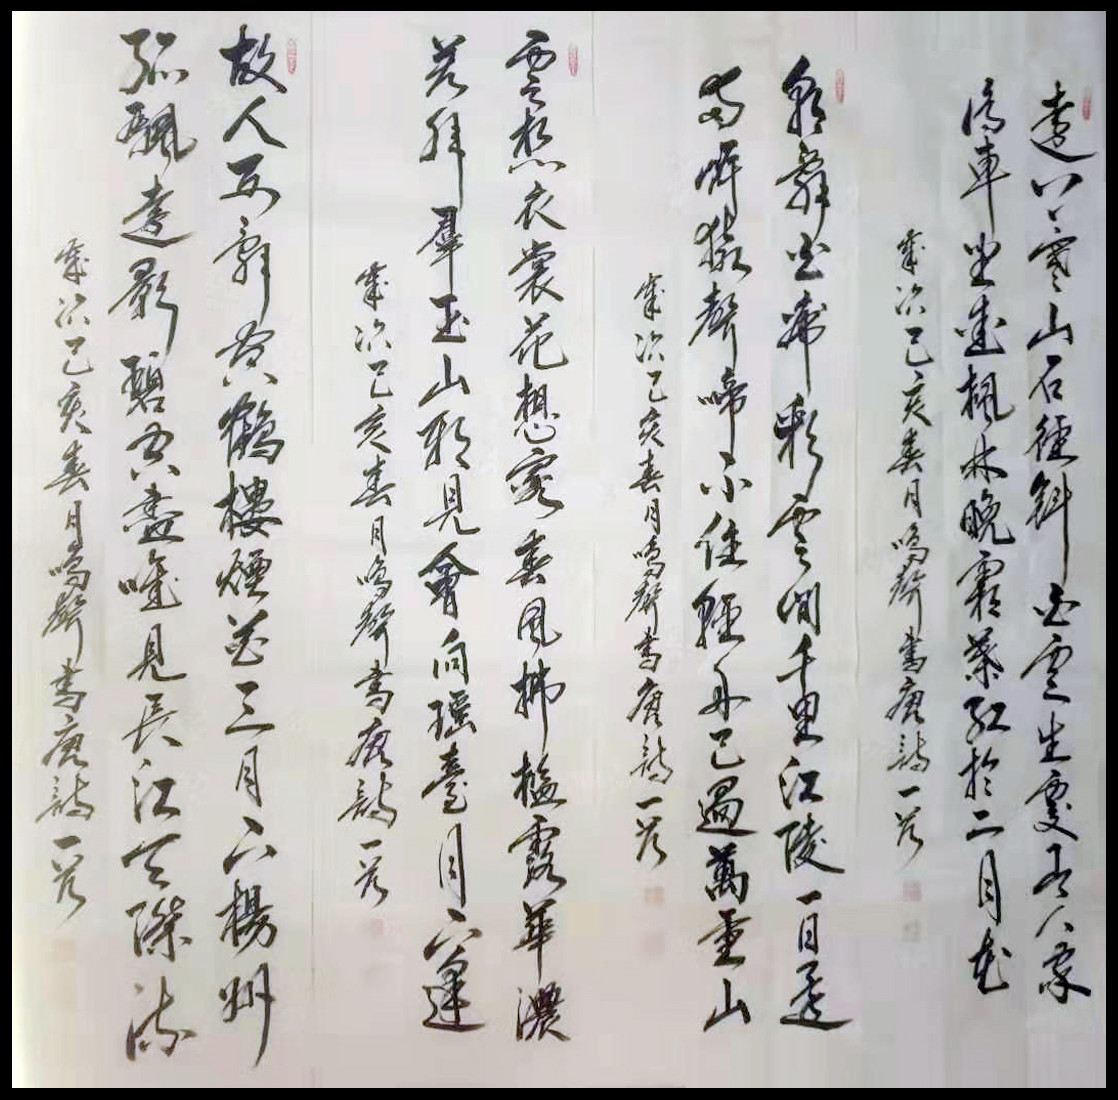 遠上寒山石徑斜白雲生處有人家
停車坐愛楓林晚霜葉紅於二月花
歲次己亥春月鳴聲書唐詩一首
朝辭白帝彩雲間千里江陵一日還
兩岸猿聲啼不住輕舟已過萬重山
歲次己亥春月鳴聲書唐詩一首
雲想衣裳花想容春風拂檻露華濃
若非羣玉山頭見會向瑤臺月下逢
歲次己亥春月鳴聲書唐詩一首
故人西辭黃鶴樓煙花三月下揚州
孤帆遠影碧空盡唯見長江天際流
歲次己亥春月鳴聲書唐詩一首